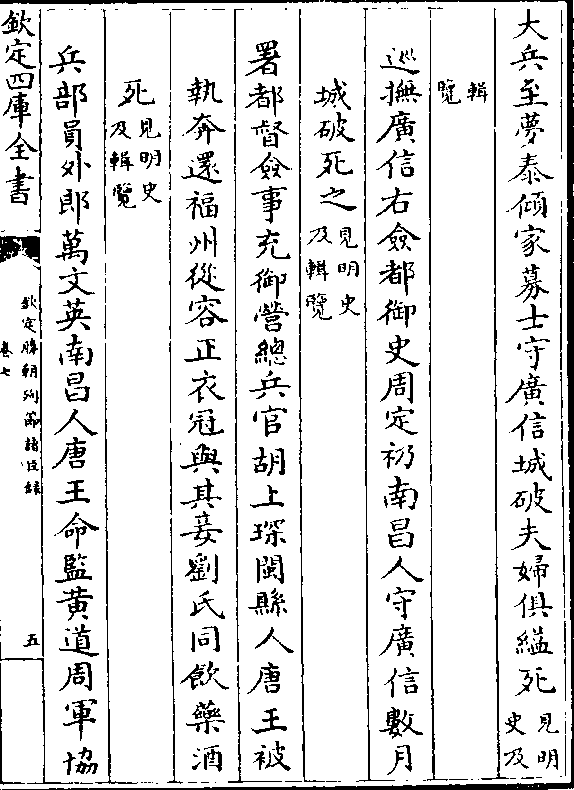 大兵至夢泰傾家募士守廣信城破夫婦俱縊死見明史及
輯覽
巡撫廣信右僉都御史周定礽南昌人守廣信數月
城破死之見明史及輯覽
署都督僉事充御營總兵官胡上琛閩縣人唐王被
執奔還福州從容正衣冠與其妾劉氏同飲藥酒
死見明史及輯覽
兵部員外郎萬文英南昌人唐王命監黃道周軍協
欽定四庫全書
欽定勝朝殉節諸臣錄
卷七
五